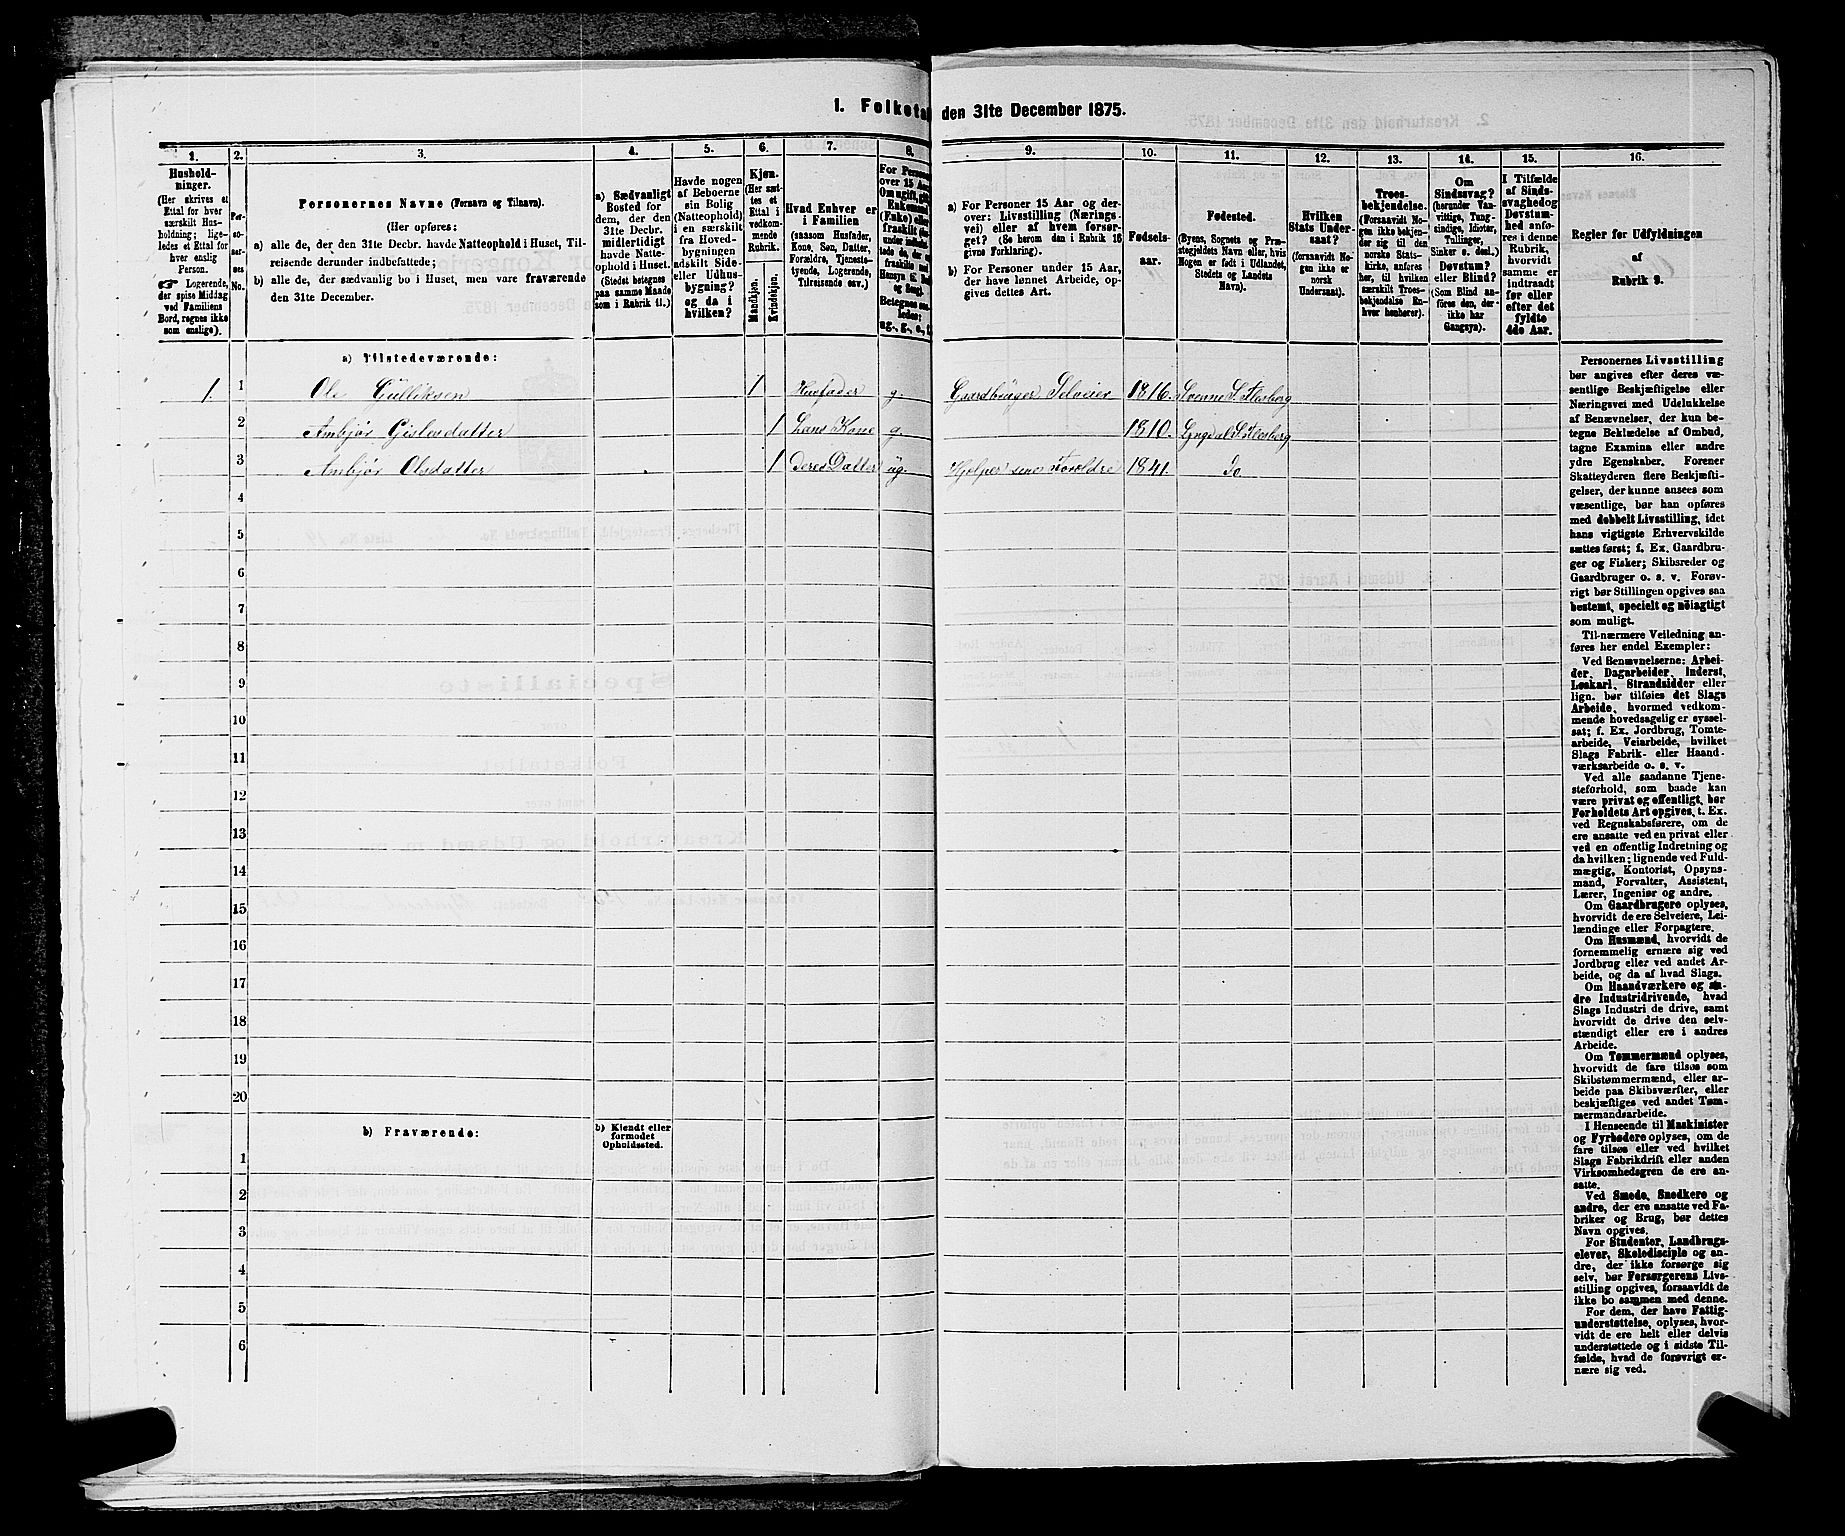 1. Folketa den 31te December 1875.
1.
Hushold-
ninger.
(Her skrives et
Ettal for hver
særskilt Hus-
holdning; lige-
ledes et Ettal for
hver enslig
Person.
Logerende,
der spise Middag
ved Familiens
Bord, regnes ikke
som enslige).
2.
Per-
so-
ner-
nes
No.
3.
Personernes Navne (Fornavn og Tilnavn).
(Her opføres:
a) alle de, der den 31te Decbr. havde Natteophold i Huset, Til-
reisende derunder indbefattede;
b) alle de, der sædvanlig bo i Huset, men vare fraværende
den 31te December.
4.
a) Sædvanligt
Bosted for
dem, der den
31te Decbr.
midlertidigt
havde Natte-
ophold i Huset.
(Stedet betegnes
paa samme Maade
som i Rubrik 11.)
5.
Havde nogen
af Beboerne
sin Bolig
(Natteophold)
i en særskilt
fra Hoved-
bygningen
adskilt Side-
eller Udhus-
bygning?
og da i
hvilken?
6.
Kjøn.
(Her sæt-
tes et
Ettal i
vedkom-
mende
Rubrik.
Mandkjøn.
Kvindekjøn.
7.
Hvad Enhver er
i Familien
(saasom Husfader,
Kone, Søn, Datter,
Forældre, Tjeneste-
tyende, Logerende,
Tilreisende osv.)
8.
For Person
over 15 Aar
Om ugift, gift
Enkemand
(Enke) eller
fraskilt
9.
a) For Personer 15 Aar og der-
over: Livsstilling (Nærings-
vei) eller af hvem forsør-
get? (Se herom den i Rubrik 16
givne Forklaring).
b) For Personer under 15 Aar,
der have lønnet Arbeide, op-
gives dettes Art.
10.
Fødsels-
aar.
11.
Fødested.
(Byens, Sognets og Præ-
stegjeldets Navn eller, hvis
Nogen er født i Udlandet,
Stedets og Landets
Navn).
12.
Hvilken
Stats Under-
saat?
(forsaavidt No-
gen ikke er
norsk
Undersaat).
13.
Troes-
bekjendelse.
(Forsaavidt No-
gen ikke bekjen-
der sig til den
norske Stats-
kirke, anføres
her, til hvilken
særskilt Troes-
bekjendelse En-
hver henhører).
14.
Om
Sindssvag?
(herunder Van-
vittige, Tung-
sindige, Idioter,
Tullinger,
Sinker o. desl.).
Døvstum?
eller Blind?
(Som Blind an-
føres den, der
ikke har
Gangsyn).
15.
I Tilfælde
af Sinds-
svaghed og
Døvstum-
hed anfø-
res i denne
Rubrik,
hvorvidt
samme er
indtraadt
før eller
efter det
fyldte
4de Aar.
16.
Regler for Udfyldningen
af
Rubrik 9.
a) Tilstedeværende:
1. 1 Ole Gulliksen 1 Husfader g. Gaardbruger Selveier 1816. Svenne S. Flesberg
2 Anbjør Gislesdatter 1 hans Kone g. 1810. Lyngdal S. Flesberg
3 Anbjør Olsdatter 1 deres Datter ug. Hjelper sine Foroldre 1841. Do
4
5
6
7
8
9
10
11
12
13
14
15
16
17
18
19
20
b) Fraværende:
b) Kjendt eller
formodet
Opholdssted.
1
2
3
4
5
6
Personernes Livsstilling
bør angives efter deres væ-
sentlige Beskjæftigelse eller
Næringsvei med Udelukkelse
af Benævnelser, der kun be-
tegne Beklædelse af Ombud,
tagne Examina eller andre
ydre Egenskaber. Forener
Skatteyderen flere Beskjæfti-
gelser, der kunne ansees som
væsentlige, bør han opføres
med dobbelt Livsstilling, idet
hans vigtigste Erhvervskilde
sættes først; f. Ex. Gaardbru-
ger og Fisker; Skibsreder og
Gaardbruger o. s. v. Forøv-
rigt bør Stillingen opgives saa
bestemt, specielt og nøiagtigt
som muligt.
Til nærmere Veiledning an-
føres her endel Exempler:
Ved Benævnelserne: Arbei-
der, Dagarbeider, Inderst,
Løskarl, Strandsidder eller
lign. bør tilføies det Slags
Arbeide, hvormed vedkom-
mende hovedsagelig er syssel-
sat; f. Ex. Jordbrug, Tomte-
arbeide, Veiarbeide, hvilket
Slags Fabrik- eller Haand-
værksarbeide o. s. v.
Ved alle saadanne Tjene-
steforhold, som baade kan
være privat og offentligt, bør
Forholdets Art opgives, t. Ex.
ved Regnskabsførere, om de
ere ansatte ved en privat eller
ved en offentlig Indretning og
da hvilken; lignende ved Fuld-
mægtig, Kontorist, Opsyns-
mand, Forvalter, Assistent,
Lærer, Ingeniør og andre.
Om Gaardbrugere oplyses,
hvorvidt de ere Selveiere, Lei-
lændinge eller Forpagtere.
Om Husmænd, hvorvidt de
fornemmelig ernære sig ved
Jordbrug eller ved andet Ar-
beide, og da af hvad Slags.
Om Haandværkere og an-
dre Industridrivende, hvad
Slags Industri de drive, samt
hvorvidt de drive den selv-
stændigt eller ere i andres
Arbeide.
Om Tømmermænd oplyses,
hvorvidt de fare tilsøs som
Skibstømmermænd, eller ar-
beide paa Skibsværfter, eller
beskjæftiges ved andet Tøm-
mermandsarbeide.
I Henseende til Maskinister
og Fyrbødere oplyses, om de
fare tilsøs eller ved hvilket
Slags Fabrikdrift eller anden
Virksomhedsgren de ere an-
satte.
Ved Smede, Snedkere og
andre, der ere ansatte ved Fa-
briker og Brug, bør dettes
Navn opgives.
For Studenter, Landbrugs-
elever, Skoledisciple og an-
dre, der ikke forsørge sig
selv, bør Forsørgerens Livs-
stilling opgives, forsaavidt de
ikke bo sammen med denne.
For dem, der have Fattig-
understøttelse, oplyses, hvor-
vidt de ere helt eller delvis
understøttede og i sidste Til-
fælde, hvad de forøvrigt er-
nære sig ved.